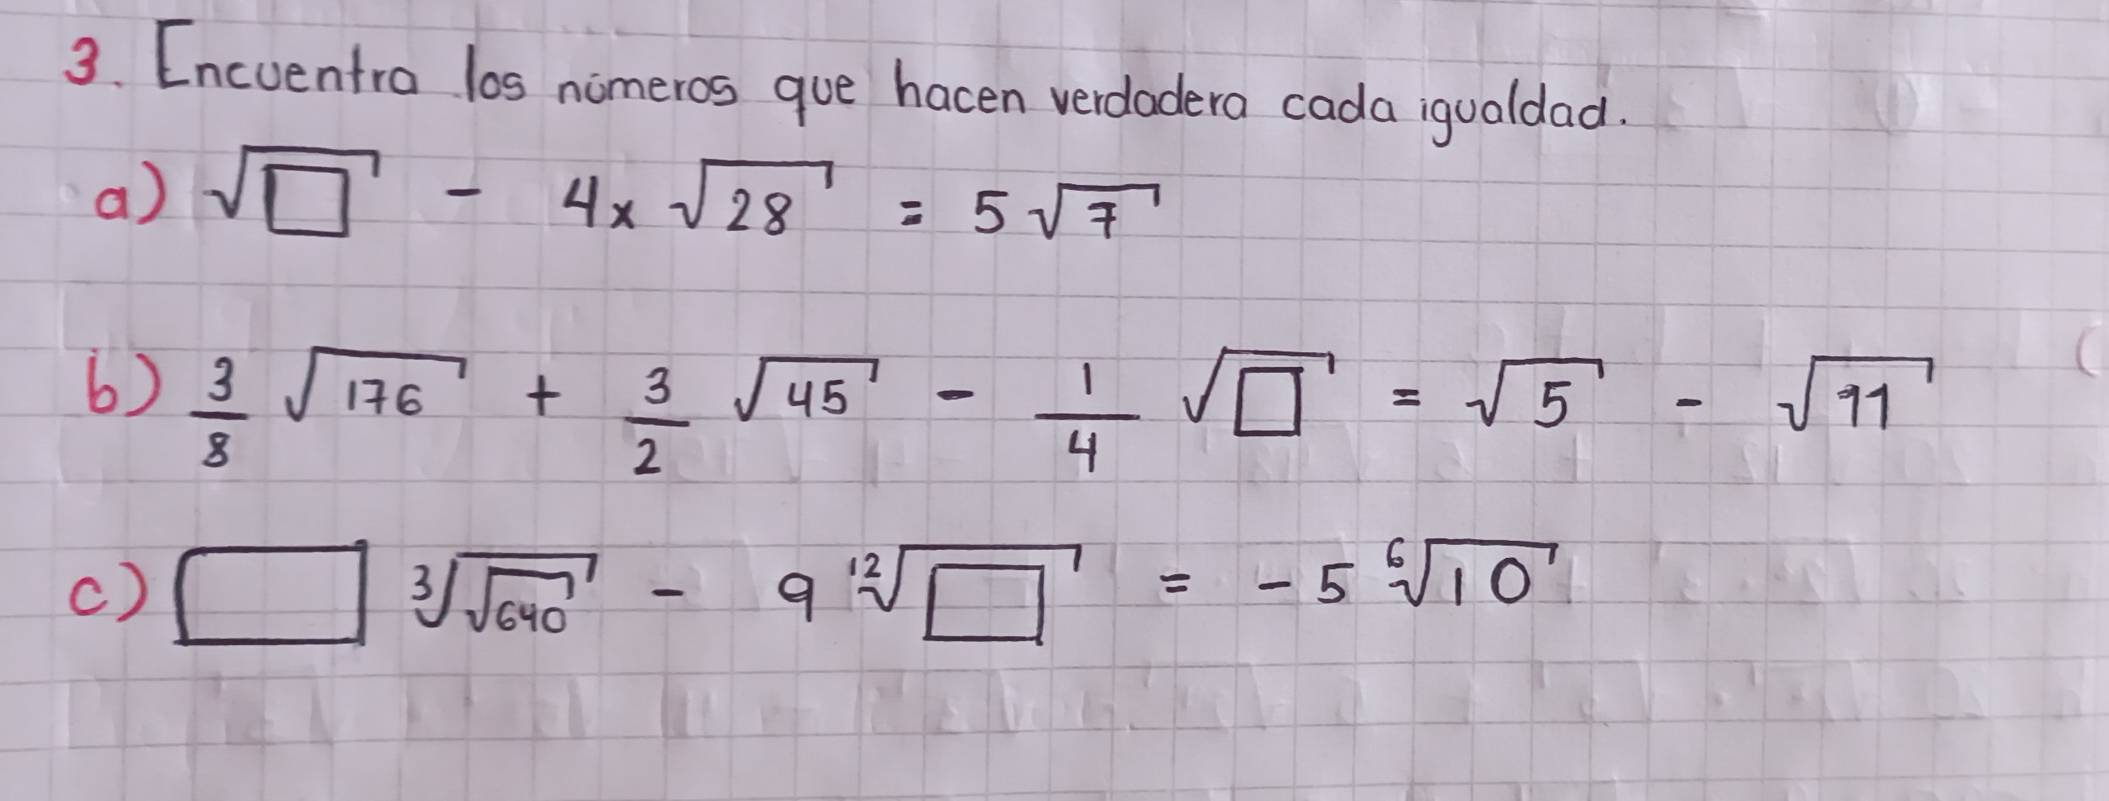 3. Encuentra los números que hacen verdadera cada igualdad.
a) √□ - 4x √28 = 5 √7
b) 3/8 √176 + 3/2 √45 - 1/4 √□ = √5 - √11
c) □ ³√√640 - 9 ¹²√□ = -5 ⁶√10